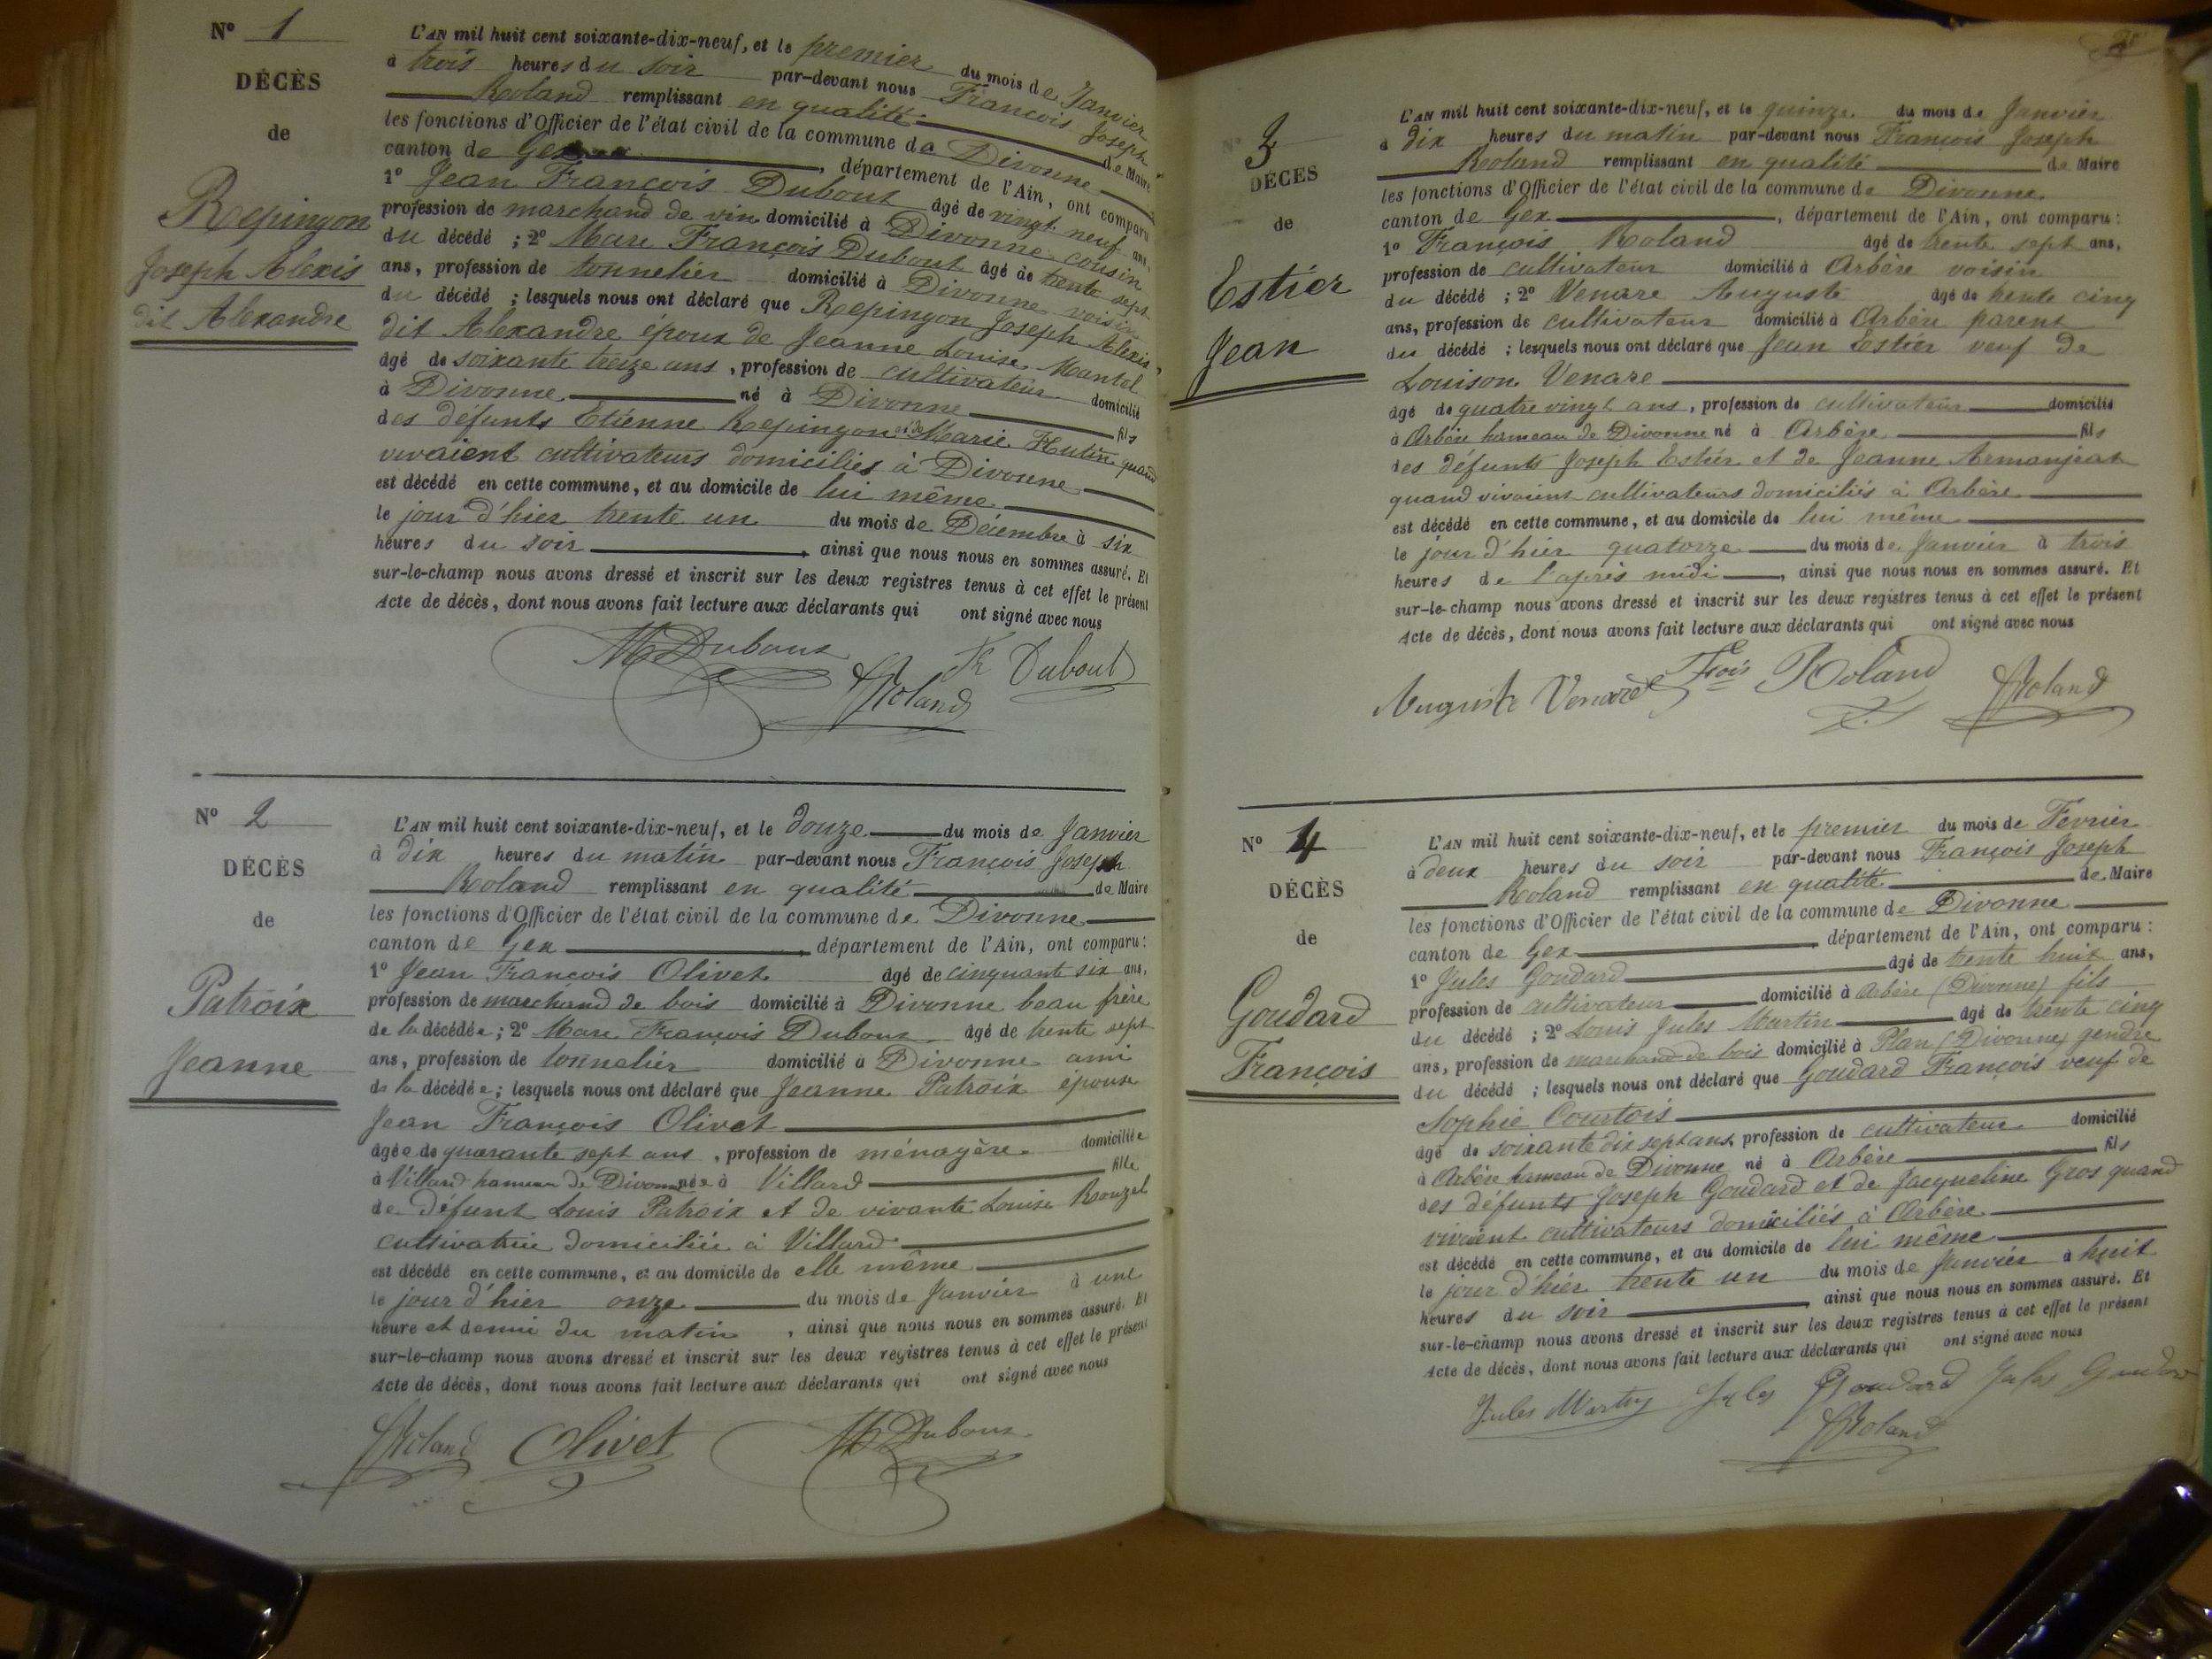 Nº 1
DÉCÈS
de
Repingon
Joseph Alexis
dit Alexandre
L'AN mil huit cent soixante-dix-neuf, et le premier du mois de Janvier
à trois heures du soir par-devant nous François Joseph
Roland remplissant en qualité de Maire
les fonctions d'Officier de l'état civil de la commune de Divonne
canton de Gex, département de l'Ain, ont comparu
1º Jean François Dubout âgé de vingt neuf ans,
profession de marchand de vin domicilié à Divonne cousin
du décédé ; 2º Marc François Dubout âgé de trente sept
ans, profession de tonnelier domicilié à Divonne voisin
du décédé ; lesquels nous ont déclaré que Repingon Joseph Alexis
dit Alexandre époux de Jeanne Louise Mantel
âgé de soixante treize ans, profession de cultivateur domicilié
à Divonne né à Divonne fils
des défunts Etienne Repingon et de Marie Hutin quand
vivaient cultivateurs domiciliés à Divonne
est décédé en cette commune, et au domicile de lui même
le jour d'hier trente un du mois de Décembre à six
heures du soir, ainsi que nous nous en sommes assuré. Et
sur-le-champ nous avons dressé et inscrit sur les deux registres tenus à cet effet le présent
Acte de décès, dont nous avons fait lecture aux déclarants qui ont signé avec nous
M Dubout Roland Dubout
Nº 2
DÉCÈS
de
Patroix
Jeanne
L'AN mil huit cent soixante-dix-neuf, et le douze du mois de Janvier
à dix heures du matin par-devant nous François Joseph
Roland remplissant en qualité de Maire
les fonctions d'Officier de l'état civil de la commune de Divonne
canton de Gex, département de l'Ain, ont comparu :
1º Jean François Olivet âgé de cinquant six ans,
profession de marchand de bois domicilié à Divonne beau frère
de la décédée ; 2º Marc François Dubout âgé de trente sept
ans, profession de tonnelier domicilié à Divonne ami
de la décédée ; lesquels nous ont déclaré que Jeanne Patroix épouse
Jean François Olivet
âgée de quarante sept ans, profession de ménagère domiciliée
à Villard hameau de Divonne née à Villard fille
de défunt Louis Patroix et de vivante Louise Rouzel
cultivatrice domiciliée à Villard
est décédé en cette commune, et au domicile de elle même
le jour d'hier onze du mois de Janvier à une
heure et demie du matin, ainsi que nous nous en sommes assuré. Et
sur-le-champ nous avons dressé et inscrit sur les deux registres tenus à cet effet le présent
Acte de décès, dont nous avons fait lecture aux déclarants qui ont signé avec nous
Roland Olivet M Dubout
Nº 3
DÉCÈS
de
Estier
Jean
L'AN mil huit cent soixante-dix-neuf, et le quinze du mois de Janvier
à dix heures du matin par-devant nous François Joseph
Roland remplissant en qualité de Maire
les fonctions d'Officier de l'état civil de la commune de Divonne
canton de Gex, département de l'Ain, ont comparu :
1º François Roland âgé de trente sept ans,
profession de cultivateur domicilié à Arbère voisin
du décédé ; 2º Venare Auguste âgé de trente cinq
ans, profession de cultivateur domicilié à Arbère parent
du décédé ; lesquels nous ont déclaré que Jean Estier veuf de
Louison Venare
âgé de quatre vingt ans, profession de cultivateur domicilié
à Arbère hameau de Divonne né à Arbère fils
des défunts Joseph Estier et de Jeanne Armanjeat
quand vivaient cultivateurs domiciliés à Arbère
est décédé en cette commune, et au domicile de lui même
le jour d'hier quatorze du mois de Janvier à trois
heures de l'après midi, ainsi que nous nous en sommes assuré. Et
sur-le-champ nous avons dressé et inscrit sur les deux registres tenus à cet effet le présent
Acte de décès, dont nous avons fait lecture aux déclarants qui ont signé avec nous
Auguste Venare Frois Roland Roland
Nº 4
DÉCÈS
de
Goudard
François
L'AN mil huit cent soixante-dix-neuf, et le premier du mois de Février
à deux heures du soir par-devant nous François Joseph
Roland remplissant en qualité de Maire
les fonctions d'Officier de l'état civil de la commune de Divonne
canton de Gex, département de l'Ain, ont comparu :
1º Jules Goudard âgé de trente huit ans,
profession de cultivateur domicilié à Arbère (Divonne) fils
du décédé ; 2º Louis Jules Martin âgé de trente cinq
ans, profession de marchand de bois domicilié à Plan (Divonne) gendre
du décédé ; lesquels nous ont déclaré que Goudard François veuf de
Sophie Courtois
âgé de soixante dix sept ans, profession de cultivateur domicilié
à Arbère hameau de Divonne né à Arbère fils
des défunts Joseph Goudard et de Jacqueline Gros quand
vivaient cultivateurs domiciliés à Arbère
est décédé en cette commune, et au domicile de lui même
le jour d'hier trente un du mois de Janvier à huit
heures du soir, ainsi que nous nous en sommes assuré. Et
sur-le-champ nous avons dressé et inscrit sur les deux registres tenus à cet effet le présent
Acte de décès, dont nous avons fait lecture aux déclarants qui ont signé avec nous
Jules Martin Jules Goudard Jules Goudard
Roland